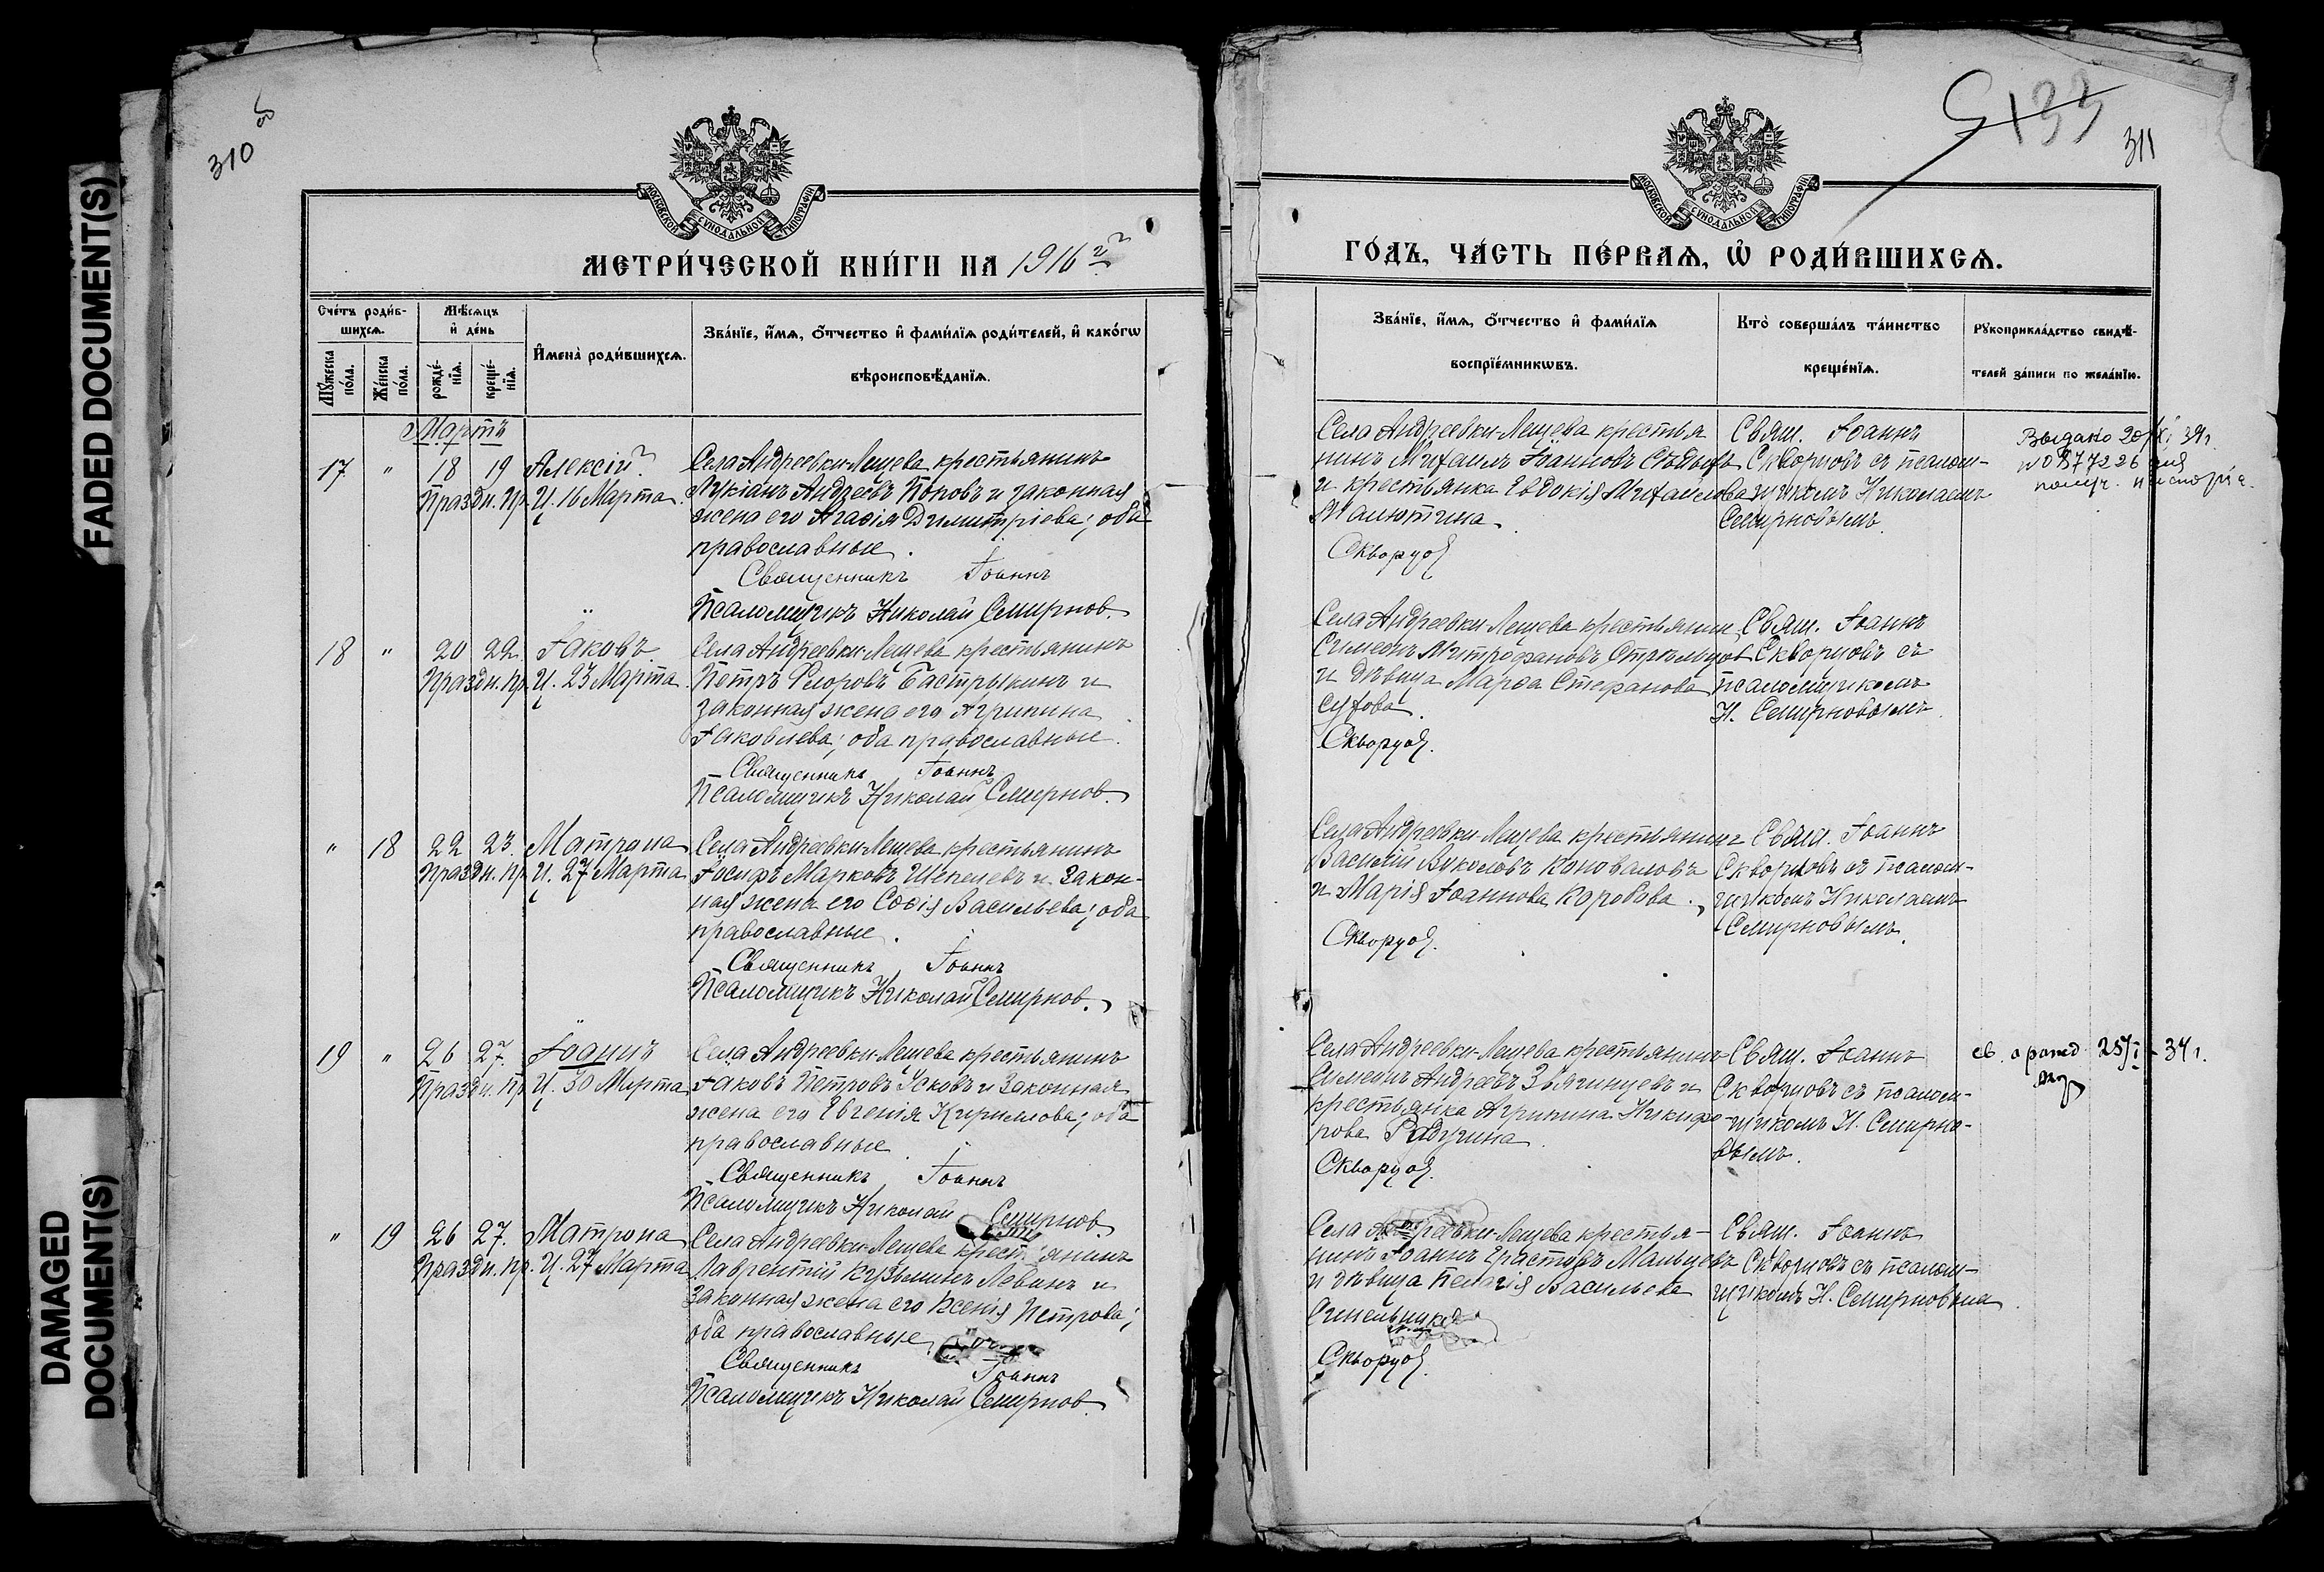 FADED DOCUMENT(S)
DAMAGED
DOCUMENT(S)
310
об
МОСКОВСКОЙ СѴНОДАЛЬНОЙ ТИПОГРАФІИ
МЕТРИ́ЧЕСКОЙ КНИ́ГИ НА 1916 г.
Сче́тъ роди́в-
шихсѧ.
Мꙋ́жеска по́ла.
Же́нска по́ла.
Мѣ́сѧцъ
и҆ де́нь
рожде́-
нїѧ.
креще́-
нїѧ.
И҆мена̀ роди́вшихсѧ.
Зва́нїе, и҆́мѧ, ѻ҆́тчество и҆ фами́лїѧ роди́телей, и҆ како́гѡ
вѣроисповѣ́данїѧ.
Мартъ
17 " 18 19 Алексій
Праздн. пр. Ч. 16 Марта.
Села Андреевки-Лещева крестьянинъ
Лукіанъ Андреевъ Поповъ и законная
жена его Агаѳія Димитріева; оба
православные.
Священникъ Іоаннъ
Псаломщикъ Николай Смирнов.
18 " 20 22. Іаковъ
Праздн. пр. Ч. 23 Марта.
Села Андреевки-Лещева крестьянинъ
Петръ Ѳеоровъ Бастрыкинъ и
законная жена его Агрипина
Іаковлева; оба православные.
Священникъ Іоаннъ
Псаломщикъ Николай Смирнов.
" 18 22 23. Матрона
Праздн. пр. Ч. 27 Марта
Села Андреевки-Лещева крестьянинъ
Іосифъ Марковъ Шепелевъ и закон-
ная жена его Софія Васильева; оба
православные.
Священникъ Іоаннъ
Псаломщикъ Николай Смирнов.
19 " 26 27. Іоаннъ
Праздн. пр. Ч. 30 Марта
Села Андреевки-Лещева крестьянинъ
Іаковъ Петровъ Усковъ и законная
жена его Евгенія Кириллова; оба
православные.
Священникъ Іоаннъ
Псаломщикъ Николай Смирнов.
" 19 26 27. Матрона
Праздн. пр. Ч. 27 Марта
Села Андреевки-Лещева крестьянинъ
Лаврентій Кузьминъ Левинъ и
законная жена его Ксенія Петрова;
оба православные.
Священникъ Іоаннъ
Псаломщикъ Николай Смирнов.
133
311
МОСКОВСКОЙ СѴНОДАЛЬНОЙ ТИПОГРАФІИ
ГО́ДЪ, ЧА́СТЬ ПЕ́РВАѦ, Ѡ҆ РОДИ́ВШИХСѦ.
Зва́нїе, и҆́мѧ, ѻ҆́тчество и҆ фами́лїѧ
воспрїе́мникѡвъ.
Кто̀ соверша́лъ та́инство
креще́нїѧ.
Рꙋкоприкла́дство свидѣ́-
телей за́писи по жела́нїю.
Села Андреевки-Лещева крестья
нинъ Михаилъ Іоанновъ Сѣдыхъ
и крестьянка Евдокія Михайлова
Малютина.
Скворцов
Свящ. Іоаннъ
Скворцовъ съ псалом-
щикомъ Николаемъ
Смирновымъ.
Выдано 20/XI 39 г.
Села Андреевки-Лещева крестьянин
Симеонъ Митрофановъ Стрельцов
и дѣвица Марѳа Стефанова
Сухова.
Скворцов.
Свящ. Іоаннъ
Скворцовъ съ
псаломщикомъ
Н. Смирновымъ.
Села Андреевки-Лещева крестьянинъ
Василій Вуколовъ Коноваловъ
и Марія Іоаннова Коробова.
Скворцов.
Свящ. Іоаннъ
Скворцовъ съ псалом-
щикомъ Николаемъ
Смирновымъ.
Села Андреевки-Лещева крестьянинъ
Симеонъ Андреевъ Звягинцевъ и
крестьянка Агрипина Никифо
рова Рядузина.
Скворцов.
Свящ. Іоаннъ
Скворцовъ съ псалом-
щикомъ Н. Смирно-
вымъ.
св. о рожд 25/I - 34 г.
Села Андреевки-Лещева крестья-
нинъ Іоаннъ Ерастовъ Мальцевъ
и дѣвица Пелагія Васильева
Синельник
Скворцов.
Свящ. Іоаннъ
Скворцовъ съ псалом-
щикомъ Н. Смирновым.